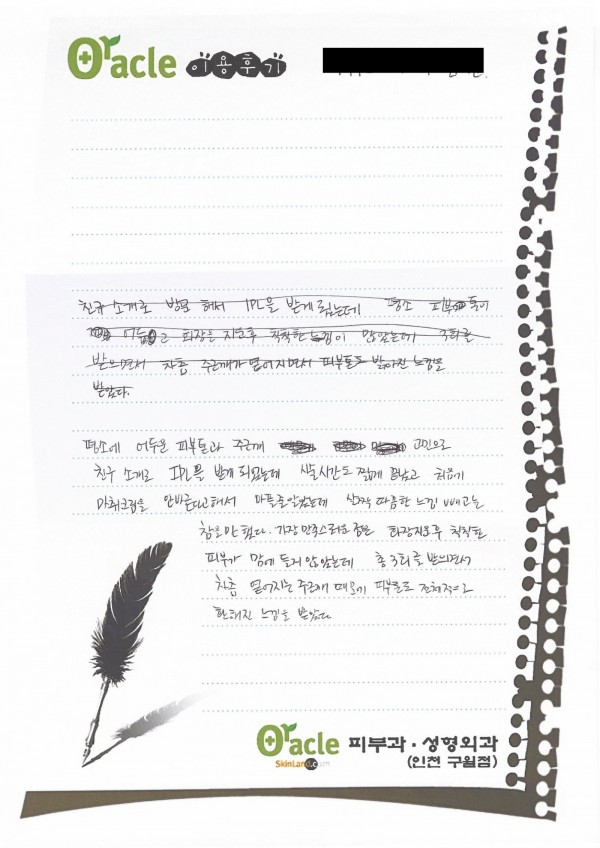 Oracle 이용후기
친구 소개로 방문 해서 IPL을 받게 됬는데 평소 피부 톤이
어둡고 화장을 지운후 칙칙한 느낌이 많았는데 3회를
받으면서 차츰 주근깨가 옅어지면서 피부톤도 밝아진 느낌을
받았다.
평소에 어두운 피부톤과 주근깨 고민으로
친구 소개로 IPL을 받게 되었는데 시술시간도 짧게 끝났고
마취크림을 안바른다고해서 아플줄알았는데 살짝 따끔한 느낌 빼고는
참을만 했다. 가장 만족스러운 점은 화장지운후 칙칙한
피부가 맘에 들지 않았는데 총 3회를 받으면서
차츰 옅어지는 주근깨 때문에 피부톤도 전체적으로
환해진 느낌을 받았다
Oracle 피부과·성형외과
SkinLand.com (인천 구월점)